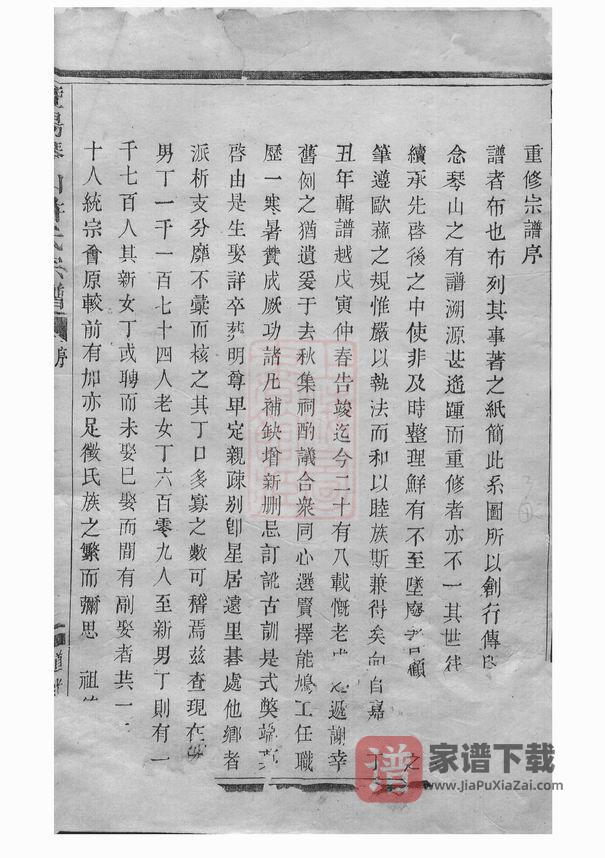 重修宗譜序
譜者布也布列其事著之紙簡此系圖所以創行傳
念琴山之有譜溯源甚遙踵而重修者亦不一其世往
續承先啓後之中使非及時整理鮮有不至墜廢者顧
筆遵歐蘇之規惟嚴以執法而和以睦族斯兼得矣向自嘉
丑年輯譜越戊寅仲春告竣迄今二十有八載慨老遞謝幸
舊例之猶遺爰于去秋集祠酌議合衆同心選賢擇能鳩工任職
歷一寒暑賛成厥功諸凡補缺增新刪忌訂訛古訓是式獎端
啓由是生娶詳卒葬明尊卑定親疎别卽星居遠里碁處他鄉者
派析支分靡不彙而核之其丁口多寡之數可稽焉兹查現在
男丁一千一百七十四人老女丁六百零九人至新男丁則有一
千七百人其新女丁或聘而未娶巳娶而間有副娶者共一
十人統宗會原較前有加亦足徵氏族之繁而彌思 祖
之
丁
氏宗譜
序
道
譜
家谱下载
www.JiaPuXiaZai.com